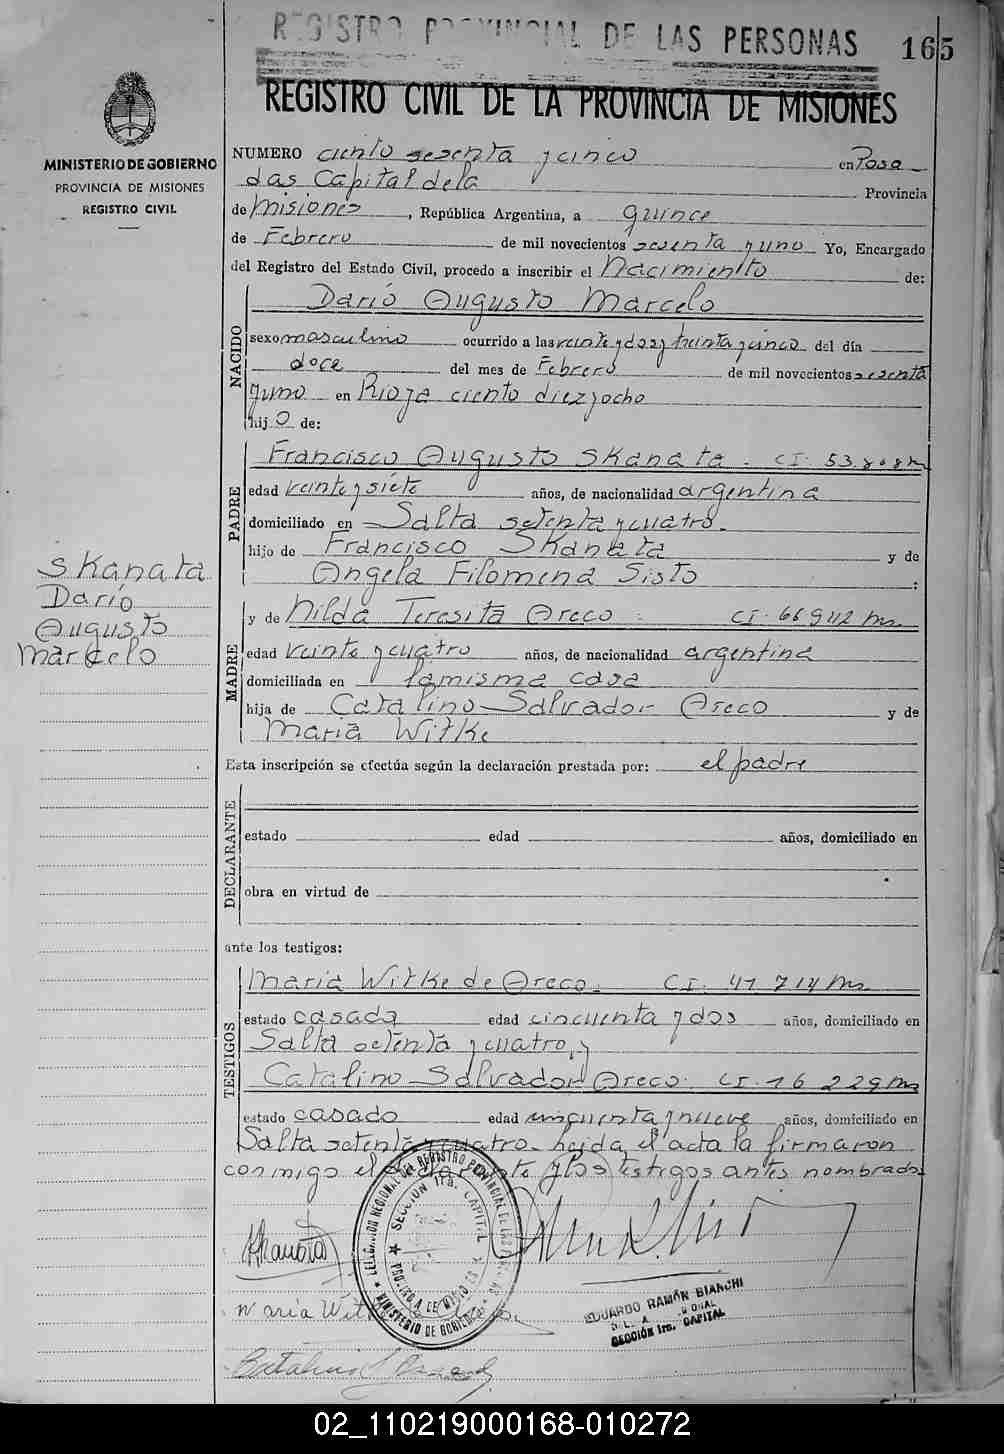 REGISTRO PROVINCIAL DE LAS PERSONAS
165
REGISTRO CIVIL DE LA PROVINCIA DE MISIONES
MINISTERIO DE GOBIERNO
PROVINCIA DE MISIONES
REGISTRO CIVIL
NUMERO ciento sesenta y cinco en Posa
das Capital de la Provincia
de Misiones, República Argentina, a quince
de Febrero de mil novecientos sesenta y uno Yo, Encargado
del Registro del Estado Civil, procedo a inscribir el Nacimiento de:
NACIDO
Darío Augusto Marcelo
sexo masculino ocurrido a las veinte y dos y treinta y cinco del día
doce del mes de Febrero de mil novecientos sesenta
y uno en Rioja ciento diez y ocho
hijo de:
PADRE
Francisco Augusto Skanata. CI. 53.808 m
edad veinte y siete años, de nacionalidad argentina
domiciliado en Salta setenta y cuatro.
hijo de Francisco Skanata y de
Angela Filomena Sisto :
MADRE
y de Nilda Teresita Oreco. CI. 66942 ms
edad veinte y cuatro años, de nacionalidad argentina
domiciliada en la misma casa
hija de Catalino Salvador Oreco y de
María Witke
Skanata
Darío
Augusto
Marcelo
Esta inscripción se efectúa según la declaración prestada por: el padre
DECLARANTE
estado edad años, domiciliado en
obra en virtud de
ante los testigos:
TESTIGOS
Maria Witke de Oreco. CI. 41 714 ms
estado casada edad cincuenta y dos años, domiciliado en
Salta setenta y cuatro, y
Catalino Salvador Oreco. CI. 16 229 ms
estado casado edad cincuenta y nueve años, domiciliado en
Salta setenta y cuatro. heida el acta la firmaron
conmigo el declarante y los testigos antes nombrados
Skanata
DELEGACION REGIONAL DEL REGISTRO PROVINCIAL DE LAS PERSONAS
SECCION 1ra. CAPITAL
PROVINCIA DE MISIONES
MINISTERIO DE GOBIERNO
Maria Witke
EDUARDO RAMÓN BIANCHI
SECCIÓN 1ra. CAPITAL
Catalino
02_110219000168-010272